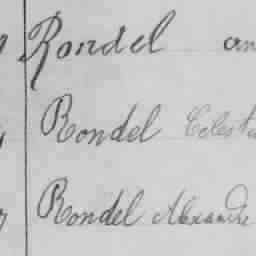 Rondel an
Rondel Celest
Rondel Alexandre